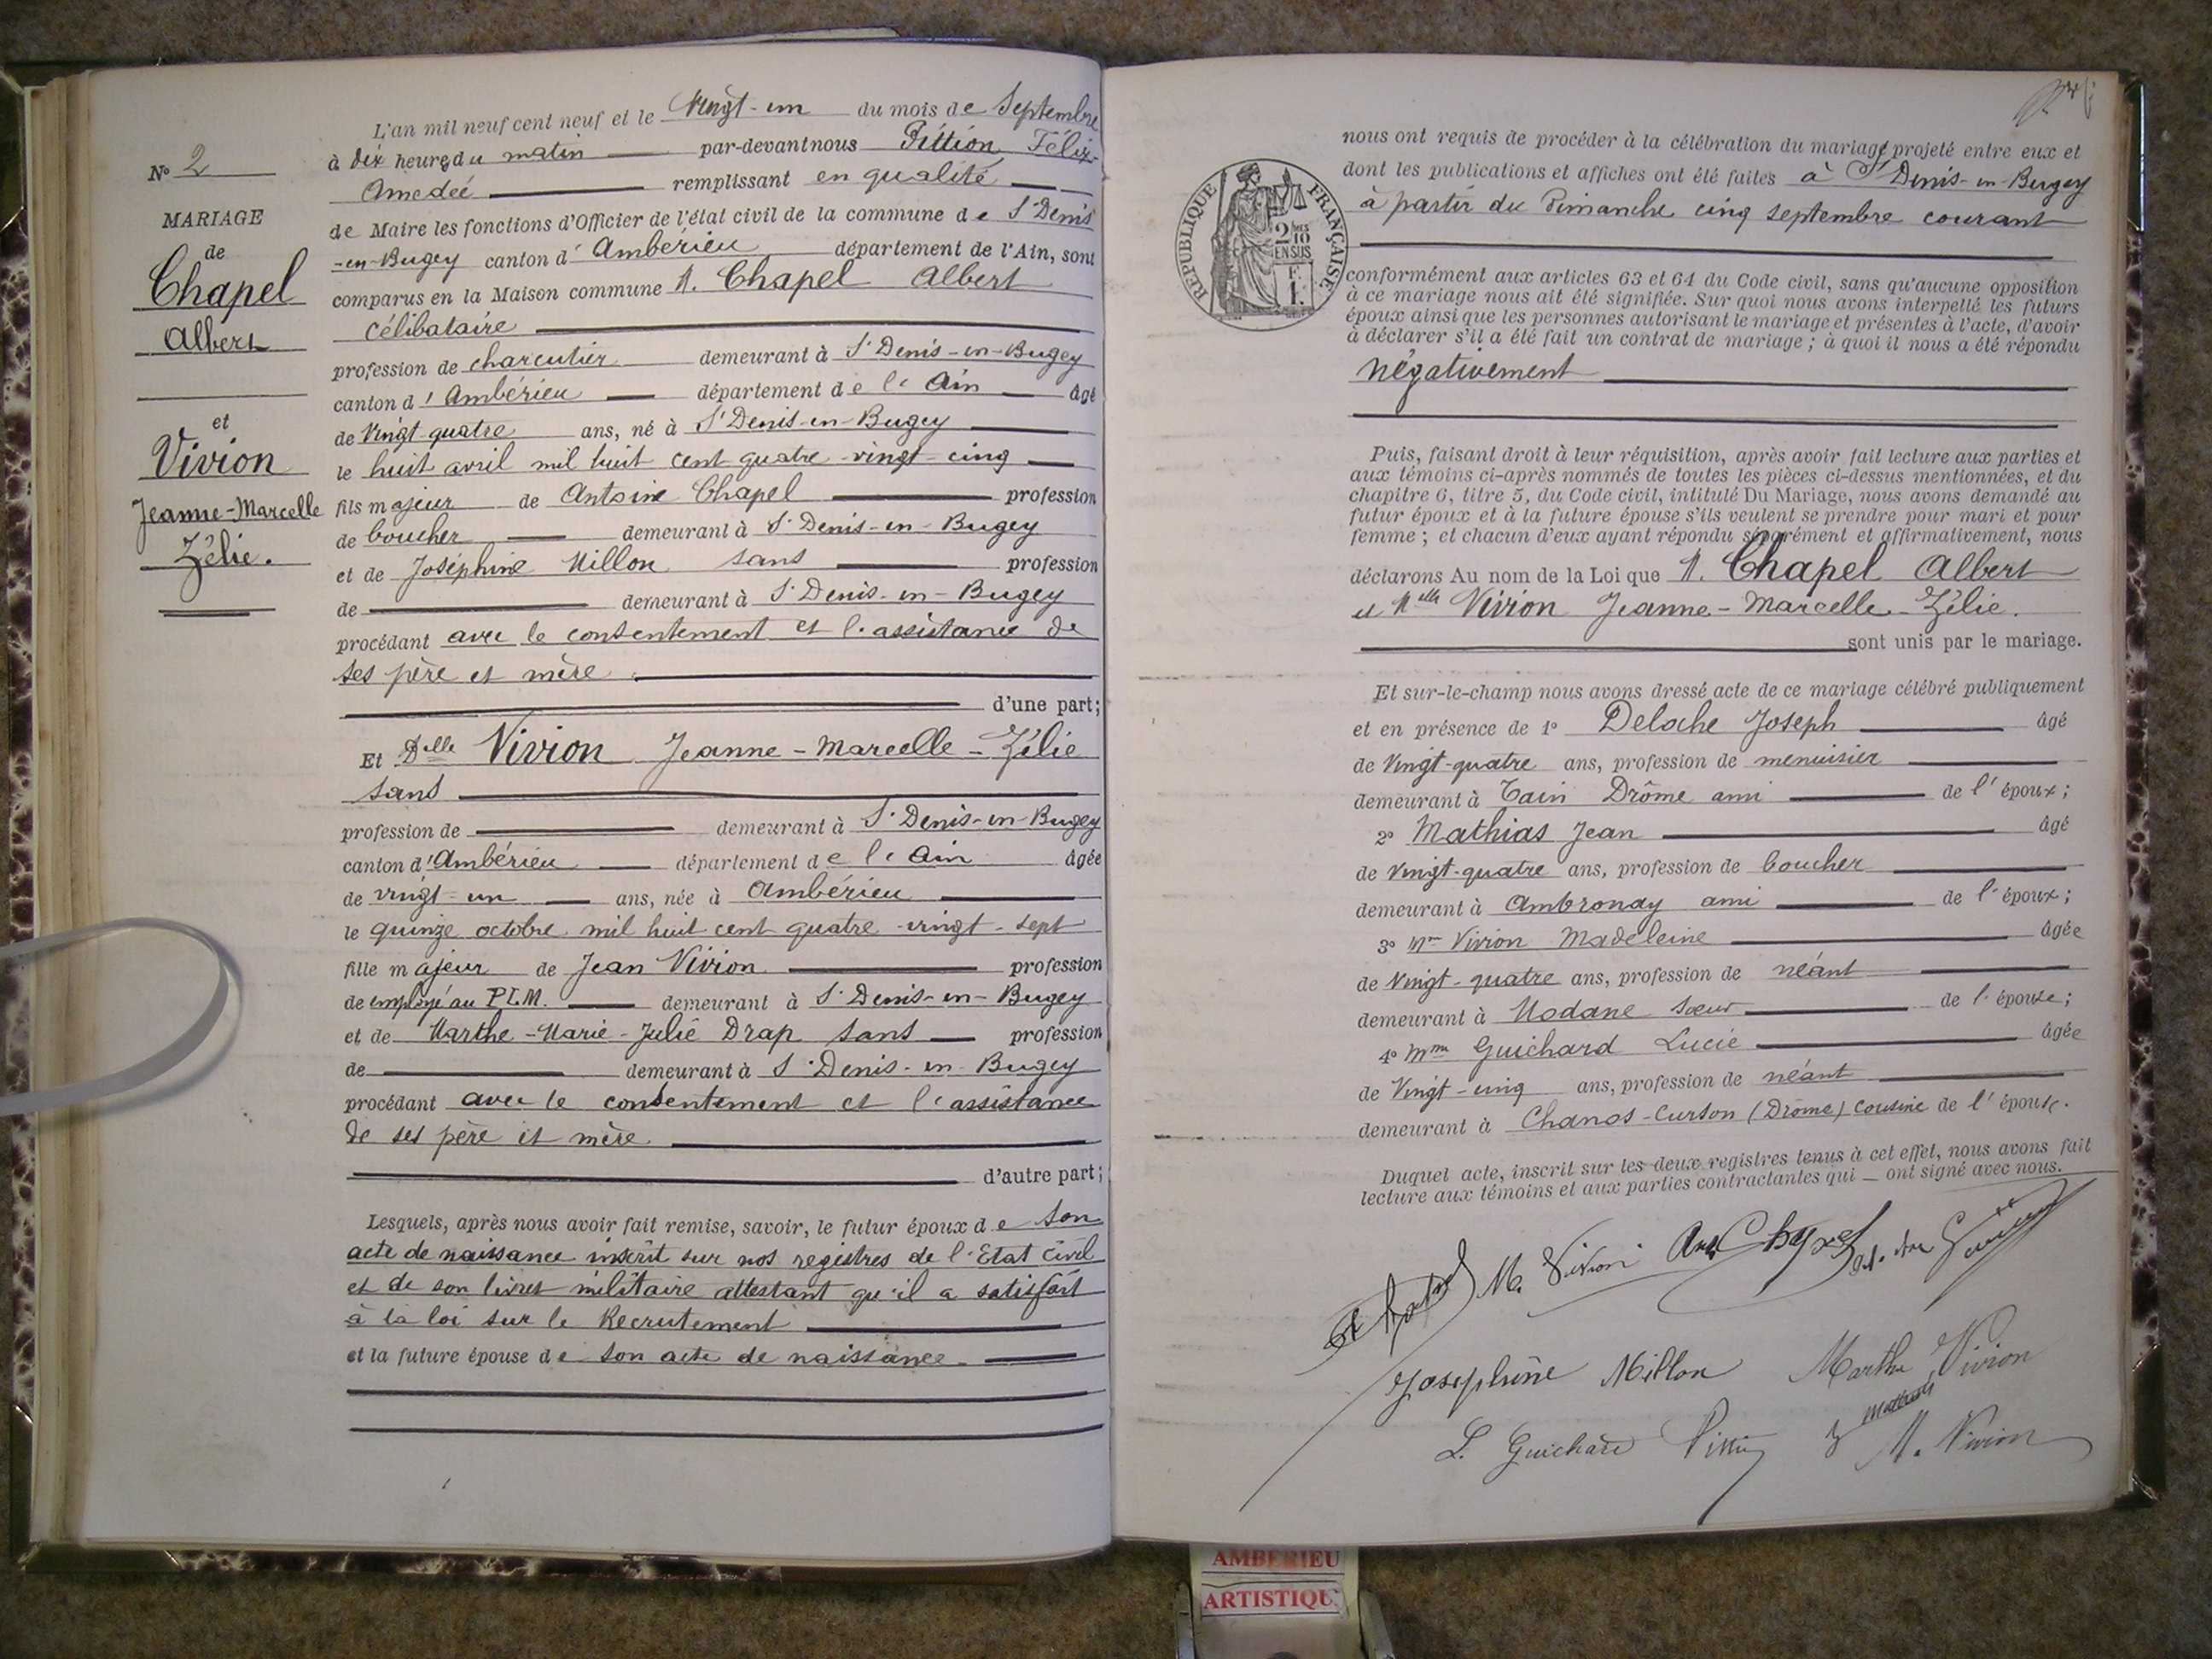 N° 2
MARIAGE
de
Chapel
Albert
et
Vivion
Jeanne-Marcelle
Zélie.
L'an mil neuf cent neuf et le Vingt-un du mois de Septembre
à dix heures du matin par-devant nous Pittion Félix-
Amedée remplissant en qualité
de Maire les fonctions d'Officier de l'état civil de la commune de St Denis
-en-Bugey canton d'Ambérieu département de l'Ain, sont
comparus en la Maison commune M. Chapel Albert
célibataire
profession de charcutier demeurant à St Denis-en-Bugey
canton d'Ambérieu département de l'Ain âgé
de Vingt quatre ans, né à St Denis-en-Bugey
le huit avril mil huit cent quatre-vingt-cinq
fils majeur de Antoine Chapel profession
de boucher demeurant à St Denis-en-Bugey
et de Joséphine Millon sans profession
de demeurant à St Denis-en-Bugey
procédant avec le consentement et l'assistance de
ses père et mère.
d'une part;
Et Delle Vivion Jeanne-Marcelle-Zélie
sans
profession de demeurant à St Denis-en-Bugey
canton d'Ambérieu département de l'Ain âgée
de vingt-un ans, née à Ambérieu
le quinze octobre mil huit cent quatre-vingt-sept
fille majeur de Jean Vivion profession
de employé au PLM. demeurant à St Denis-en-Bugey
et de Marthe-Marie-Julie Drap sans profession
de demeurant à St Denis-en-Bugey
procédant avec le consentement et l'assistance
de ses père et mère.
d'autre part;
Lesquels, après nous avoir fait remise, savoir, le futur époux de son
acte de naissance inscrit sur nos registres de l'Etat civil
et de son livret militaire attestant qu'il a satisfait
à la loi sur le Recrutement
et la future épouse de son acte de naissance.
nous ont requis de procéder à la célébration du mariage projeté entre eux et
dont les publications et affiches ont été faites à St Denis-en-Bugey
à partir du Dimanche cinq septembre courant
RÉPUBLIQUE FRANÇAISE
2/10
EN SUS
F.
1.
conformément aux articles 63 et 64 du Code civil, sans qu'aucune opposition
à ce mariage nous ait été signifiée. Sur quoi nous avons interpellé les futurs
époux ainsi que les personnes autorisant le mariage et présentes à l'acte, d'avoir
à déclarer s'il a été fait un contrat de mariage ; à quoi il nous a été répondu
négativement
Puis, faisant droit à leur réquisition, après avoir fait lecture aux parties et
aux témoins ci-après nommés de toutes les pièces ci-dessus mentionnées, et du
chapitre 6, titre 5, du Code civil, intitulé Du Mariage, nous avons demandé au
futur époux et à la future épouse s'ils veulent se prendre pour mari et pour
femme ; et chacun d'eux ayant répondu séparément et affirmativement, nous
déclarons Au nom de la Loi que M. Chapel Albert
et Melle Vivion Jeanne-Marcelle-Zélie.
sont unis par le mariage.
Et sur-le-champ nous avons dressé acte de ce mariage célébré publiquement
et en présence de 1° Deloche Joseph âgé
de Vingt-quatre ans, profession de menuisier
demeurant à Tain Drôme ami de l'époux;
2° Mathias Jean âgé
de Vingt-quatre ans, profession de boucher
demeurant à Ambronay ami de l'époux;
3° Mme Vivion Madeleine âgée
de Vingt-quatre ans, profession de néant
demeurant à Modane soeur de l'épouse;
4° Mme Guichard Lucie âgée
de Vingt-cinq ans, profession de néant
demeurant à Chanos-Curson (Drôme) cousine de l'épouse.
Duquel acte, inscrit sur les deux registres tenus à cet effet, nous avons fait
lecture aux témoins et aux parties contractantes qui ont signé avec nous.
M. Vivion Chapel
Joséphine Millon Marthe Vivion
L. Guichard Pittion Mathias M. Vivion
AMBERIEU
ARTISTIQU